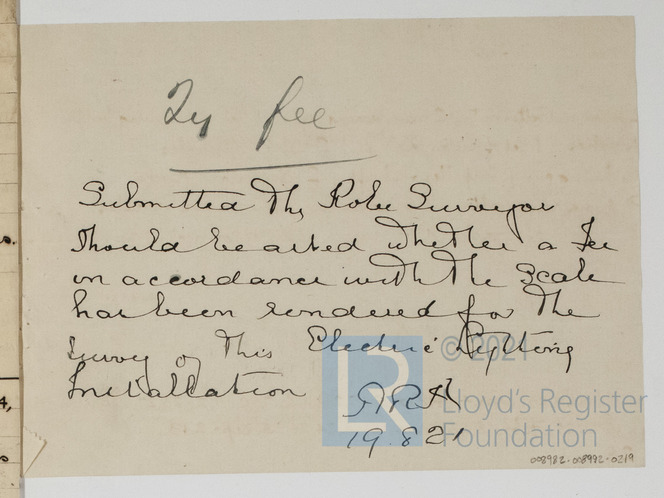 Qy fee
Submitted the Kobe Surveyor
should be asked whether a fee
in accordance with the Scale
has been rendered for the
survey of this Electric Lighting
Installation
19.8.21
© 2021
LR
Lloyd's Register
Foundation
008982-008992-0219
s.
4,